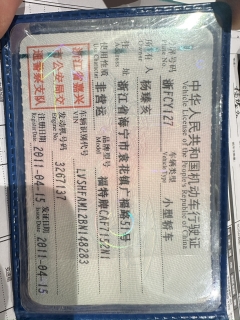 中华人民共和国机动车行驶证
Vehicle License of the People's Republic of China
号牌号码 浙FCY127 车辆类型 小型轿车
Plate No. Vehicle Type
所有人 杨臻亥
Owner
住址 浙江省海宁市袁花镇广福路51号
Address
使用性质 非营运 品牌型号 福特牌CAF7152N1
Use Character Model
浙江省嘉兴
市公安局交
通警察支队
车辆识别代号 LVSHFAML2BN148283
VIN
发动机号码 3267137
Engine No.
注册日期 2011-04-15 发证日期 2011-04-15
Register Date Issue Date